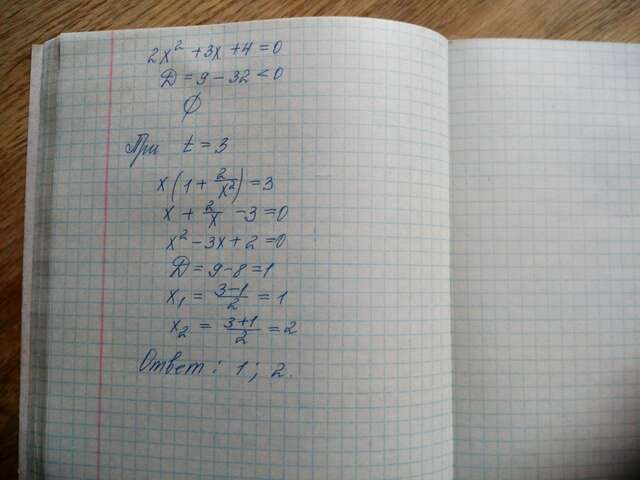 2x² + 3x + 4 = 0
Д = 9 - 32 < 0
∅
При t = 3
x(1 + 2/x²) = 3
x + 2/x - 3 = 0
x² - 3x + 2 = 0
Д = 9 - 8 = 1
x₁ = (3-1)/2 = 1
x₂ = (3+1)/2 = 2
Ответ: 1; 2.